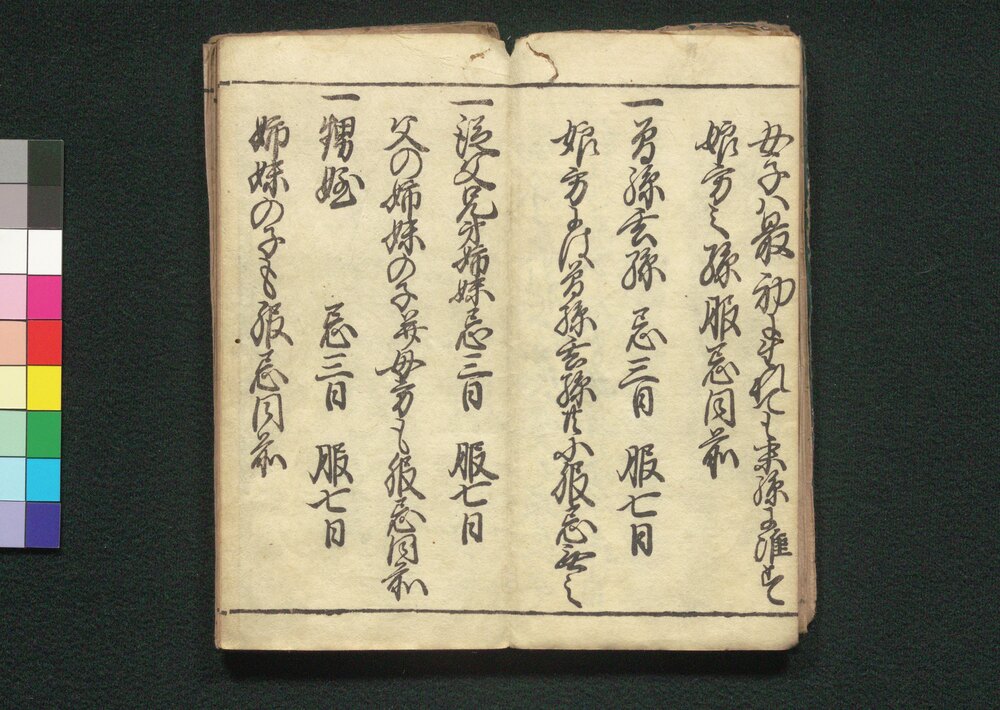 女子ハ最初ニ生れても末孫ニ准す
娘方之孫服忌同前
一曽孫玄孫 忌三日 服七日
娘方ニは曽孫玄孫共ニ服忌無之
一従父兄弟姉妹忌三日 服七日
父の姉妹の子并母方も服忌同前
一甥姪 忌三日 服七日
姉妹の子も服忌同前